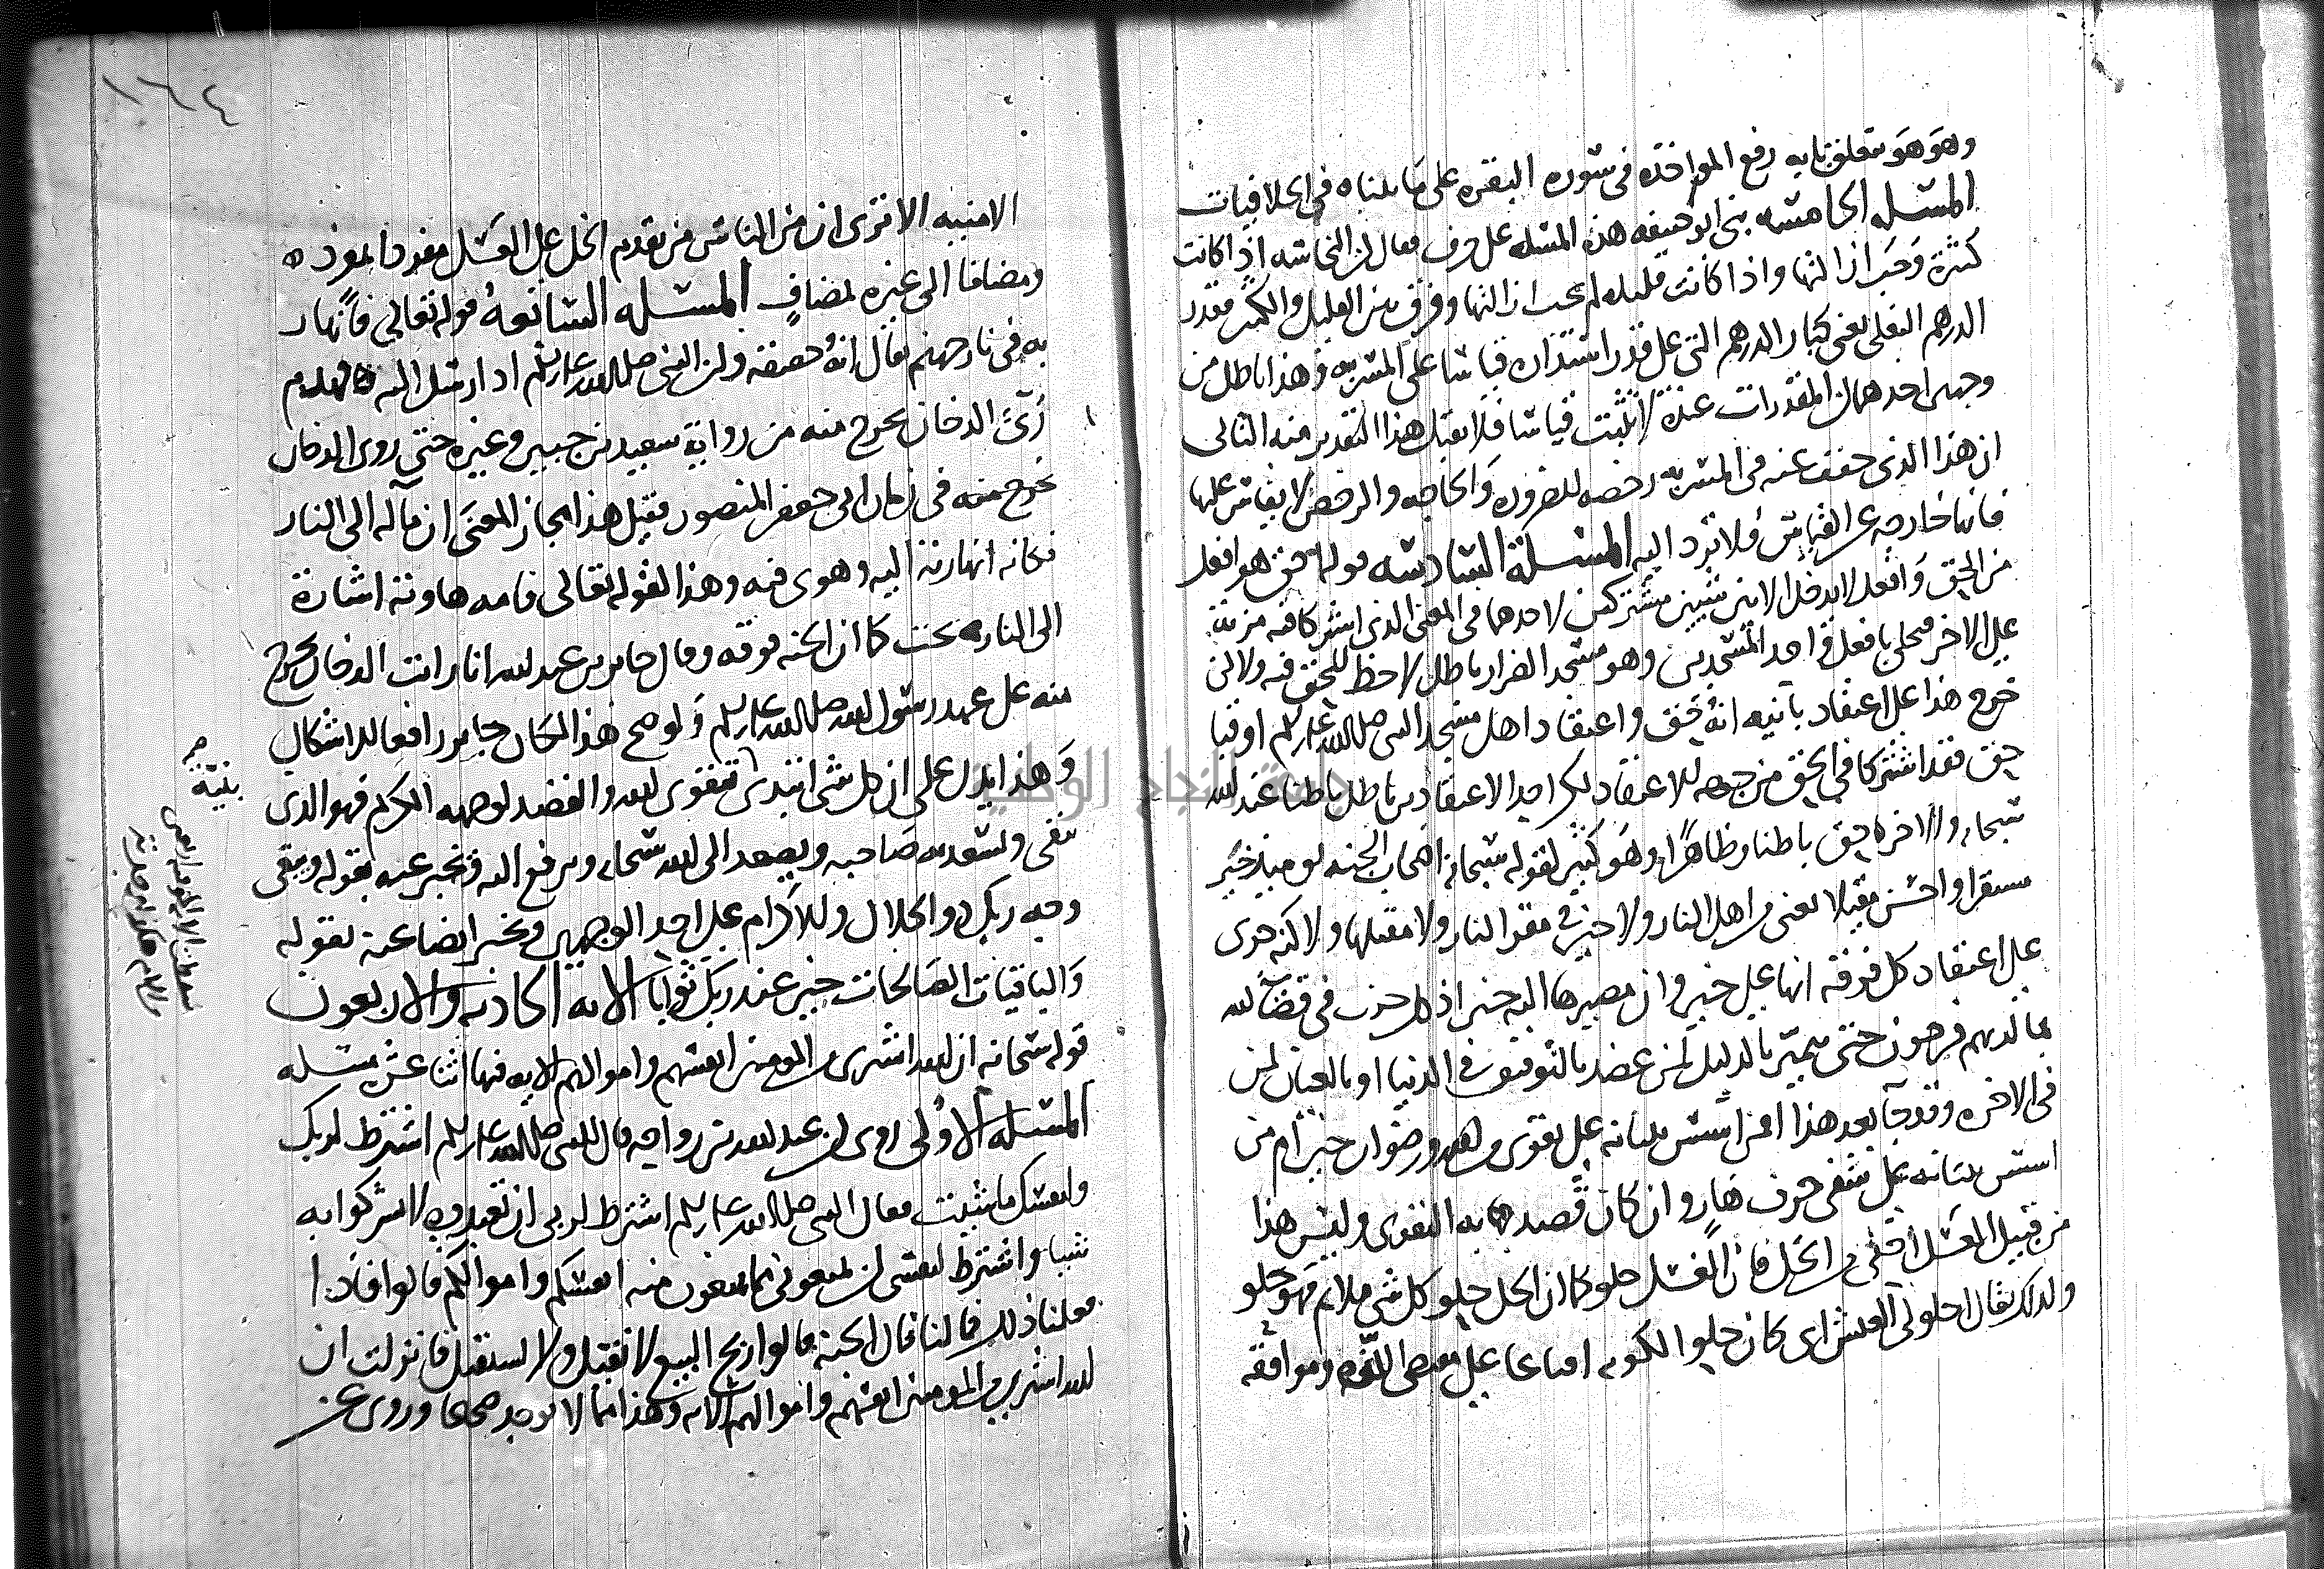 وهو هو متعلق بآيه رفع المواخذه في سوره البقره على ما بيناه في الخلافيات
المسله الخامسه بنى ابو حنيفه هذه المسله على حرف فقال ان النجاسه اذا كانت
كثيرة وجب ازالتها واذا كانت قليله لم يجب ازالتها وفرق بين القليل والكثير بقدر
الدرهم البغلي يعني كبار الدرهم التي على قدر استداره قياسا على المسربه وهذا باطل من
وجهين احدهما ان المقدرات عنده لا تثبت قياسا فلا يقبل هذا التقدير منه الثاني
ان هذا الذي خفف عنه في المسربه رخصه للضروره والحاجه والرخص لا يقاس عليها
فانها خارجه عن القياس فلا ترد اليه المسلة السادسه قوله احق هو افعل
من الحق وافعل لا يدخل الا بين شيين مشتركين لاحدهما في المعنى الذي اشتركا فيه مزية
على الاخر فحلي بافعل واحد المسجدين وهو مسجد الضرار باطل لا حظ للحق فيه ولاكن
خرج هذا على اعتقاد بانيه انه حق واعتقاد اهل مسجد النبي صلى الله عليه وسلم او قبا
حق فقد اشتركا في الحق من جهه الاعتقاد لكن احد الاعتقادين باطل باطنا عند الله
سبحانه والاخر حق باطنا وظاهرا وهو كثير لقوله سبحانه اصحاب الجنه يوميذ خير
مستقرا واحسن مقيلا يعني من اهل النار ولا خير في مقر النار ولا مقيلها ولاكنه جرى
على اعتقاد كل فرقه انها على خير وان مصيرها اليه خير اذ كل حزب في قضا الله
بما لديهم فرحون حتى يتميز بالدليل لمن عضد بالتوفيق في الدنيا او بالعيان لمن
في الاخره وقد جا بعد هذا افمن اسس بنيانه على تقوى من الله ورضوان خير ام من
اسس بنيانه على شفى جرف هار وان كان قصد به التقوى وليس هذا
من قبيل العسل احلى من الخل فان العسل حلو كما ان الخل حلو كل شي ملايم فهو حلو
ولذلك يقال احلولى العيش اي كان حلوا لكونه على مقتضى اللذه وموافقه
الامنيه الا ترى ان من الناس من يقدم الخل على العسل مفردا بمفرده
ومضافا الى غيره لمضاف المسله السابعه قوله تعالى فانهار
به في نار جهنم يقال انه حقيقه وان النبي صلى الله عليه وسلم اذ ارسل اليه فهدم
رءي الدخان يخرج منه من رواية سعيد بن جبير وغيره حتى روى الدخان
يخرج منه في زمان ابي جعفر المنصور فقيل هذا مجاز المعنى ان مآله الى النار
فكانه انهار به اليه وهوى فيه وهذا لقوله تعالى فامه هاوية اشارة
الى النار تحت كما ان الجنه فوقه وقال جابر بن عبد الله انا رايت الدخان يخرج
منه على عهد رسول الله صلى الله عليه وسلم ولو صح هذا لكان جابر رافعا للاشكال
وهذا يدل على ان كل شي ابتدي بتقوى الله والقصد لوجهه الكريم فهو الذي
يبقى ويسعد به صاحبه ويصعد الى الله سبحانه ويرفع اليه ويخبر عنه بقوله ويبقى
وجه ربك ذو الجلال والاكرام على احد الوجهين ويخبر ايضا عنه بقوله
والباقيات الصالحات خير عند ربك ثوابا الايه الحاديه والاربعون
قوله سبحانه ان الله اشترى من المومنين انفسهم واموالهم الايه فيها اثنا عشر مسله
المسله الاولى روى ان عبد الله بن رواحه قال للنبي صلى الله عليه وسلم اشترط لربك
ولنفسك ما شيت فقال النبي صلى الله عليه وسلم اشترط لربي ان تعبدوه لا تشركوا به
شيا واشترط لنفسي ان تمنعوني مما تمنعون منه انفسكم واموالكم قالوا فاذا
فعلنا ذلك فما لنا قال الجنه قالوا ربح البيع لا نقيل ولا نستقيل فانزلت ان
الله اشترى من المومنين انفسهم واموالهم الايه وهذا مما لا يوجد صحيحا وروي عن
بنية
١٦٤
جامعة النجاح الوطنية